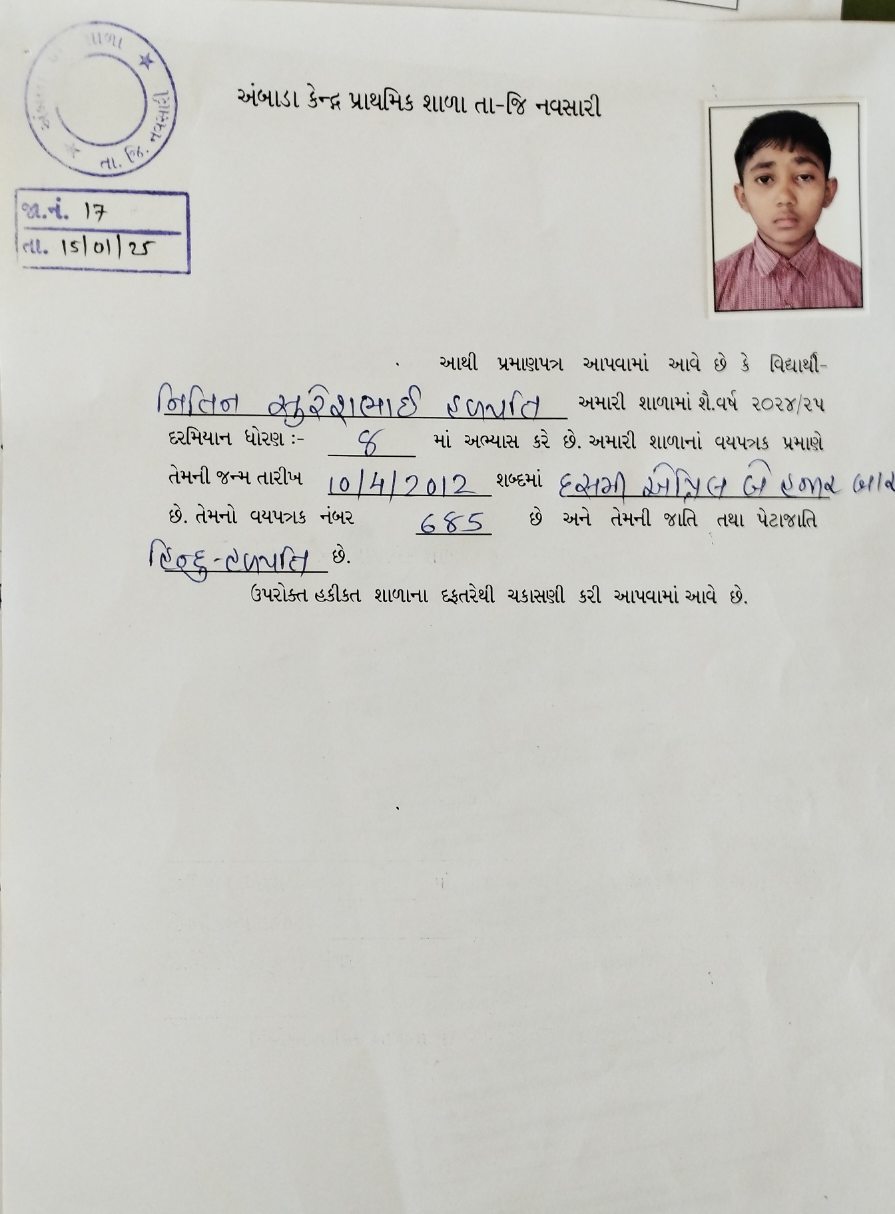 શાળા
તા. જિ. નવસારી
અંબાડા કેન્દ્ર પ્રાથમિક શાળા તા-જિ નવસારી
જા.નં. 17
તા. 15/01/25
આથી પ્રમાણપત્ર આપવામાં આવે છે કે વિદ્યાર્થી-
નિતિન સુરેશભાઈ હળપતિ અમારી શાળામાં શૈ.વર્ષ ૨૦૨૪/૨૫
દરમિયાન ધોરણ :- 8 માં અભ્યાસ કરે છે. અમારી શાળાનાં વયપત્રક પ્રમાણે
તેમની જન્મ તારીખ 10/4/2012 શબ્દમાં દસમી એપ્રિલ બે હજાર બાર
છે. તેમનો વયપત્રક નંબર 685 છે અને તેમની જાતિ તથા પેટાજાતિ
હિન્દુ-હળપતિ છે.
ઉપરોક્ત હકીકત શાળાના દફતરેથી ચકાસણી કરી આપવામાં આવે છે.